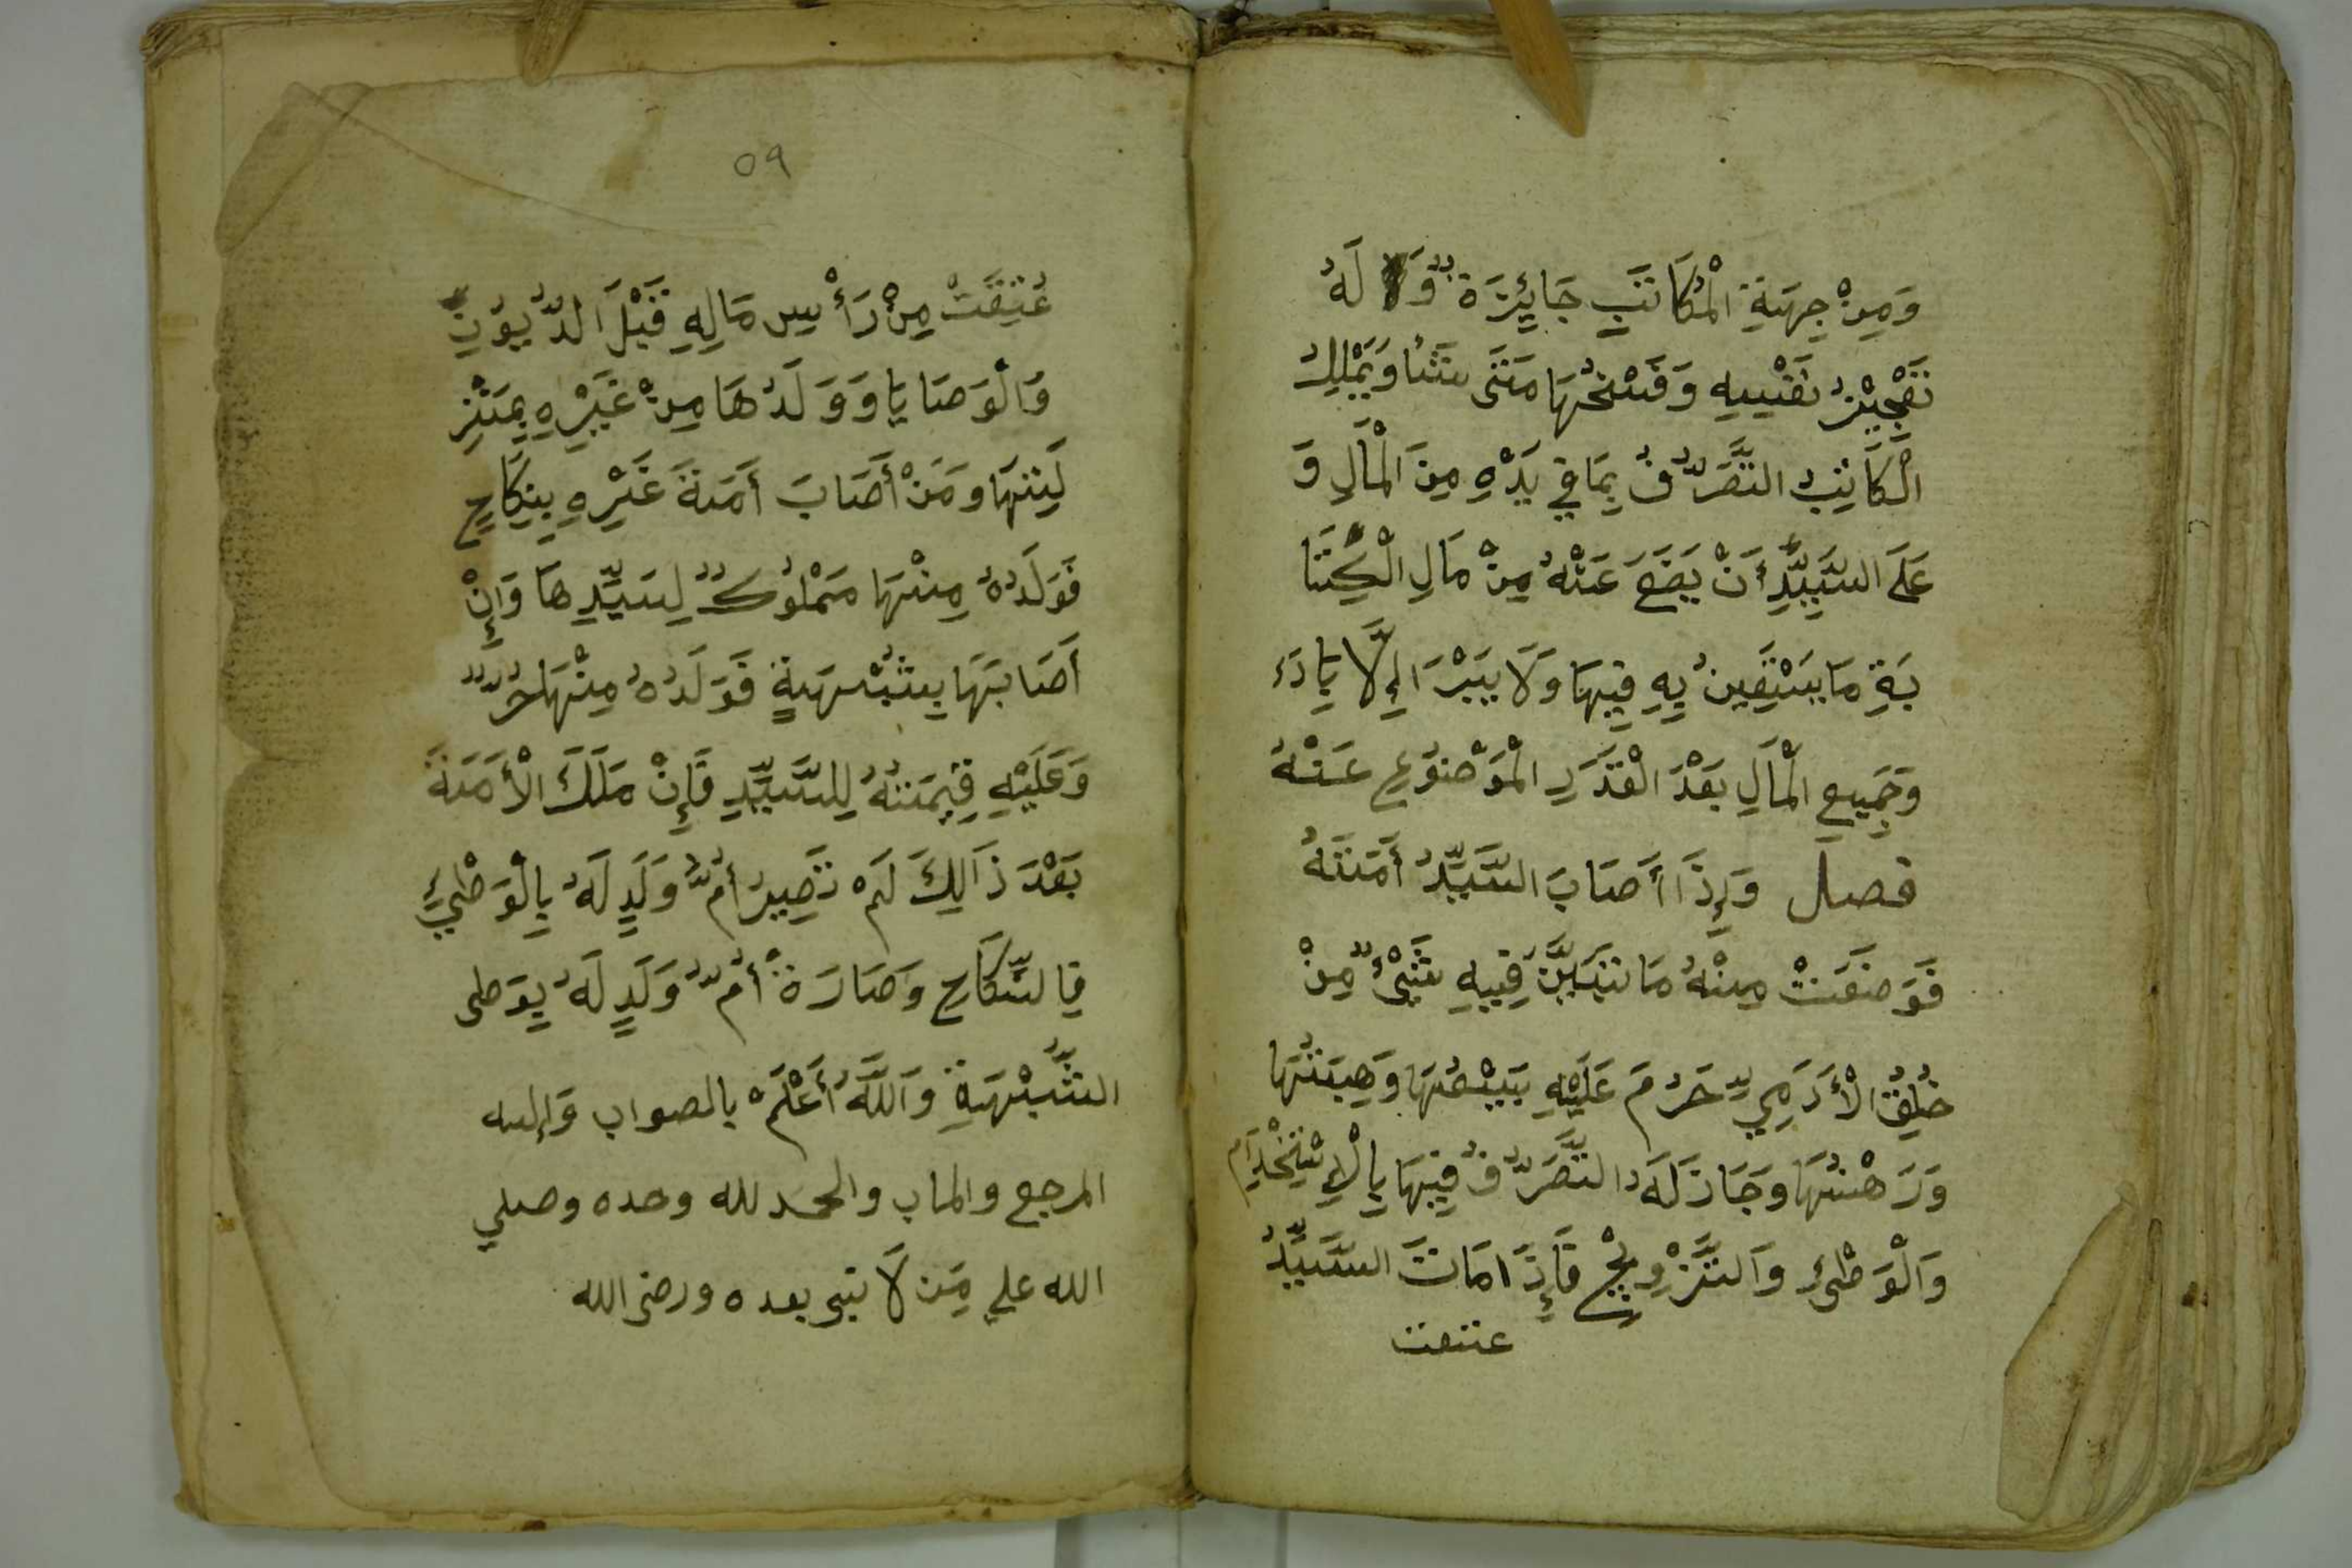 وَمِنْ جِهَةِ الْمُكَاتَبِ جَايِٕزَة ٌ وَلَا لَهُ
تَعْجِيْزُ نَفْسِهِ وَفَسْخُهَا مَتَى شَٓا وَيَمْلِكُ
الْكَاتِبُ التَّصَرُّفُ بِمَا فِي يَدْهِ مِنَ الْمَالِ وَ
عَلَى السَّيِّدِ أَنْ يَضَعَ عَنْهُ مِنْ مَالِ الْكِتَا
بَةِ مَا يَسْتَعِينُ بِهِ فِيهَا وَلَا يَبْرَا إِلَّا بِادَءِ
وَجَمِيعِ الْمَالِ بَعْدَ الْقَدَرِ الْمَوْضُوْعِ عَنْهُ
فصل وَإِذَا أَصَابَ السَّيِّدُ أَمَتَهُ
فَوَضَعَتْ مِنْهُ مَا تَبَيَّنَ فِيهِ شَيْءٌ مِنْ
خُلِقُ الْأَدَمِيِّ حَرُمَ عَلَيْهِ بَيْعُهَا وَهِبَتُهَا
وَرَهْنُهَا وَجَازَ لَهُ التَّصَرُّفُ فِيهَا بِالْاِسْتِخْدَامِ
وَالْوَطْئِ وَالتَّزْوِيْجِ فَإِذَا مَاتَ السَّيِّدُ
عتقت
٥٩
عُتِقَتْ مِنْ رَأْسِ مَالِهِ قَبْلَ الدُّيُوْنِ
وَالْوَصَايَا وَوَلَدُهَا مِنْ غَيْرِهِ بِمَنْزِ
لَتِهَا وَمَنْ أَصَابَ أَمَةَ غَيْرِهِ بِنِكَاحٍ
فَوَلَدُهُ مِنْهَا مَمْلُوْكٌ لِسَيِّدِهَا وَإِنْ
أَصَابَهَا بِشُبْهَةٍ فَوَلَدُهُ مِنْهَا حُرٌّ
وَعَلَيْهِ قِيْمَتُهُ لِلسَّيِّدِ فَإِنْ مَلَكَ الْأَمَةَ
بَعْدَ ذَالِكَ لَمْ تَصِيرُ أُمُّ وَلَدٍ لَهُ بِالْوَطْئِ
فِالنِّكَاحِ وَصَارَة أُمُّ وَلَدٍ لَهُ بِوَطى
الشُّبْهَةِ وَاللَّهُ أَعْلَمْ بالصواب وَإليه
المرجع والماب والحمد لله وحده وصلي
الله علي مَن لَا نبى بعده ورضى الله